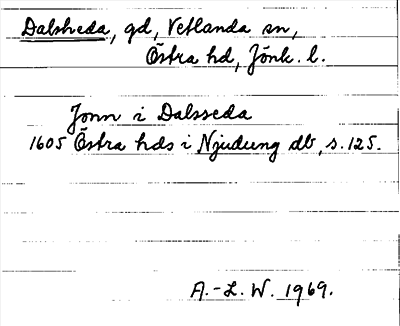 Dalsheda, gd, Vetlanda sn,
Östra hd, Jönk. l.
Jonn i Dalsseda
1605 Östra hds i Njudung db, s. 125.
A.-L. W. 1969.